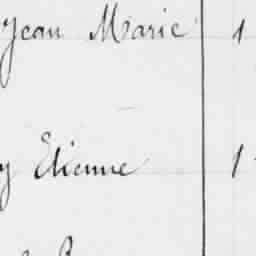 Jean Marie 1
y Etienne 1